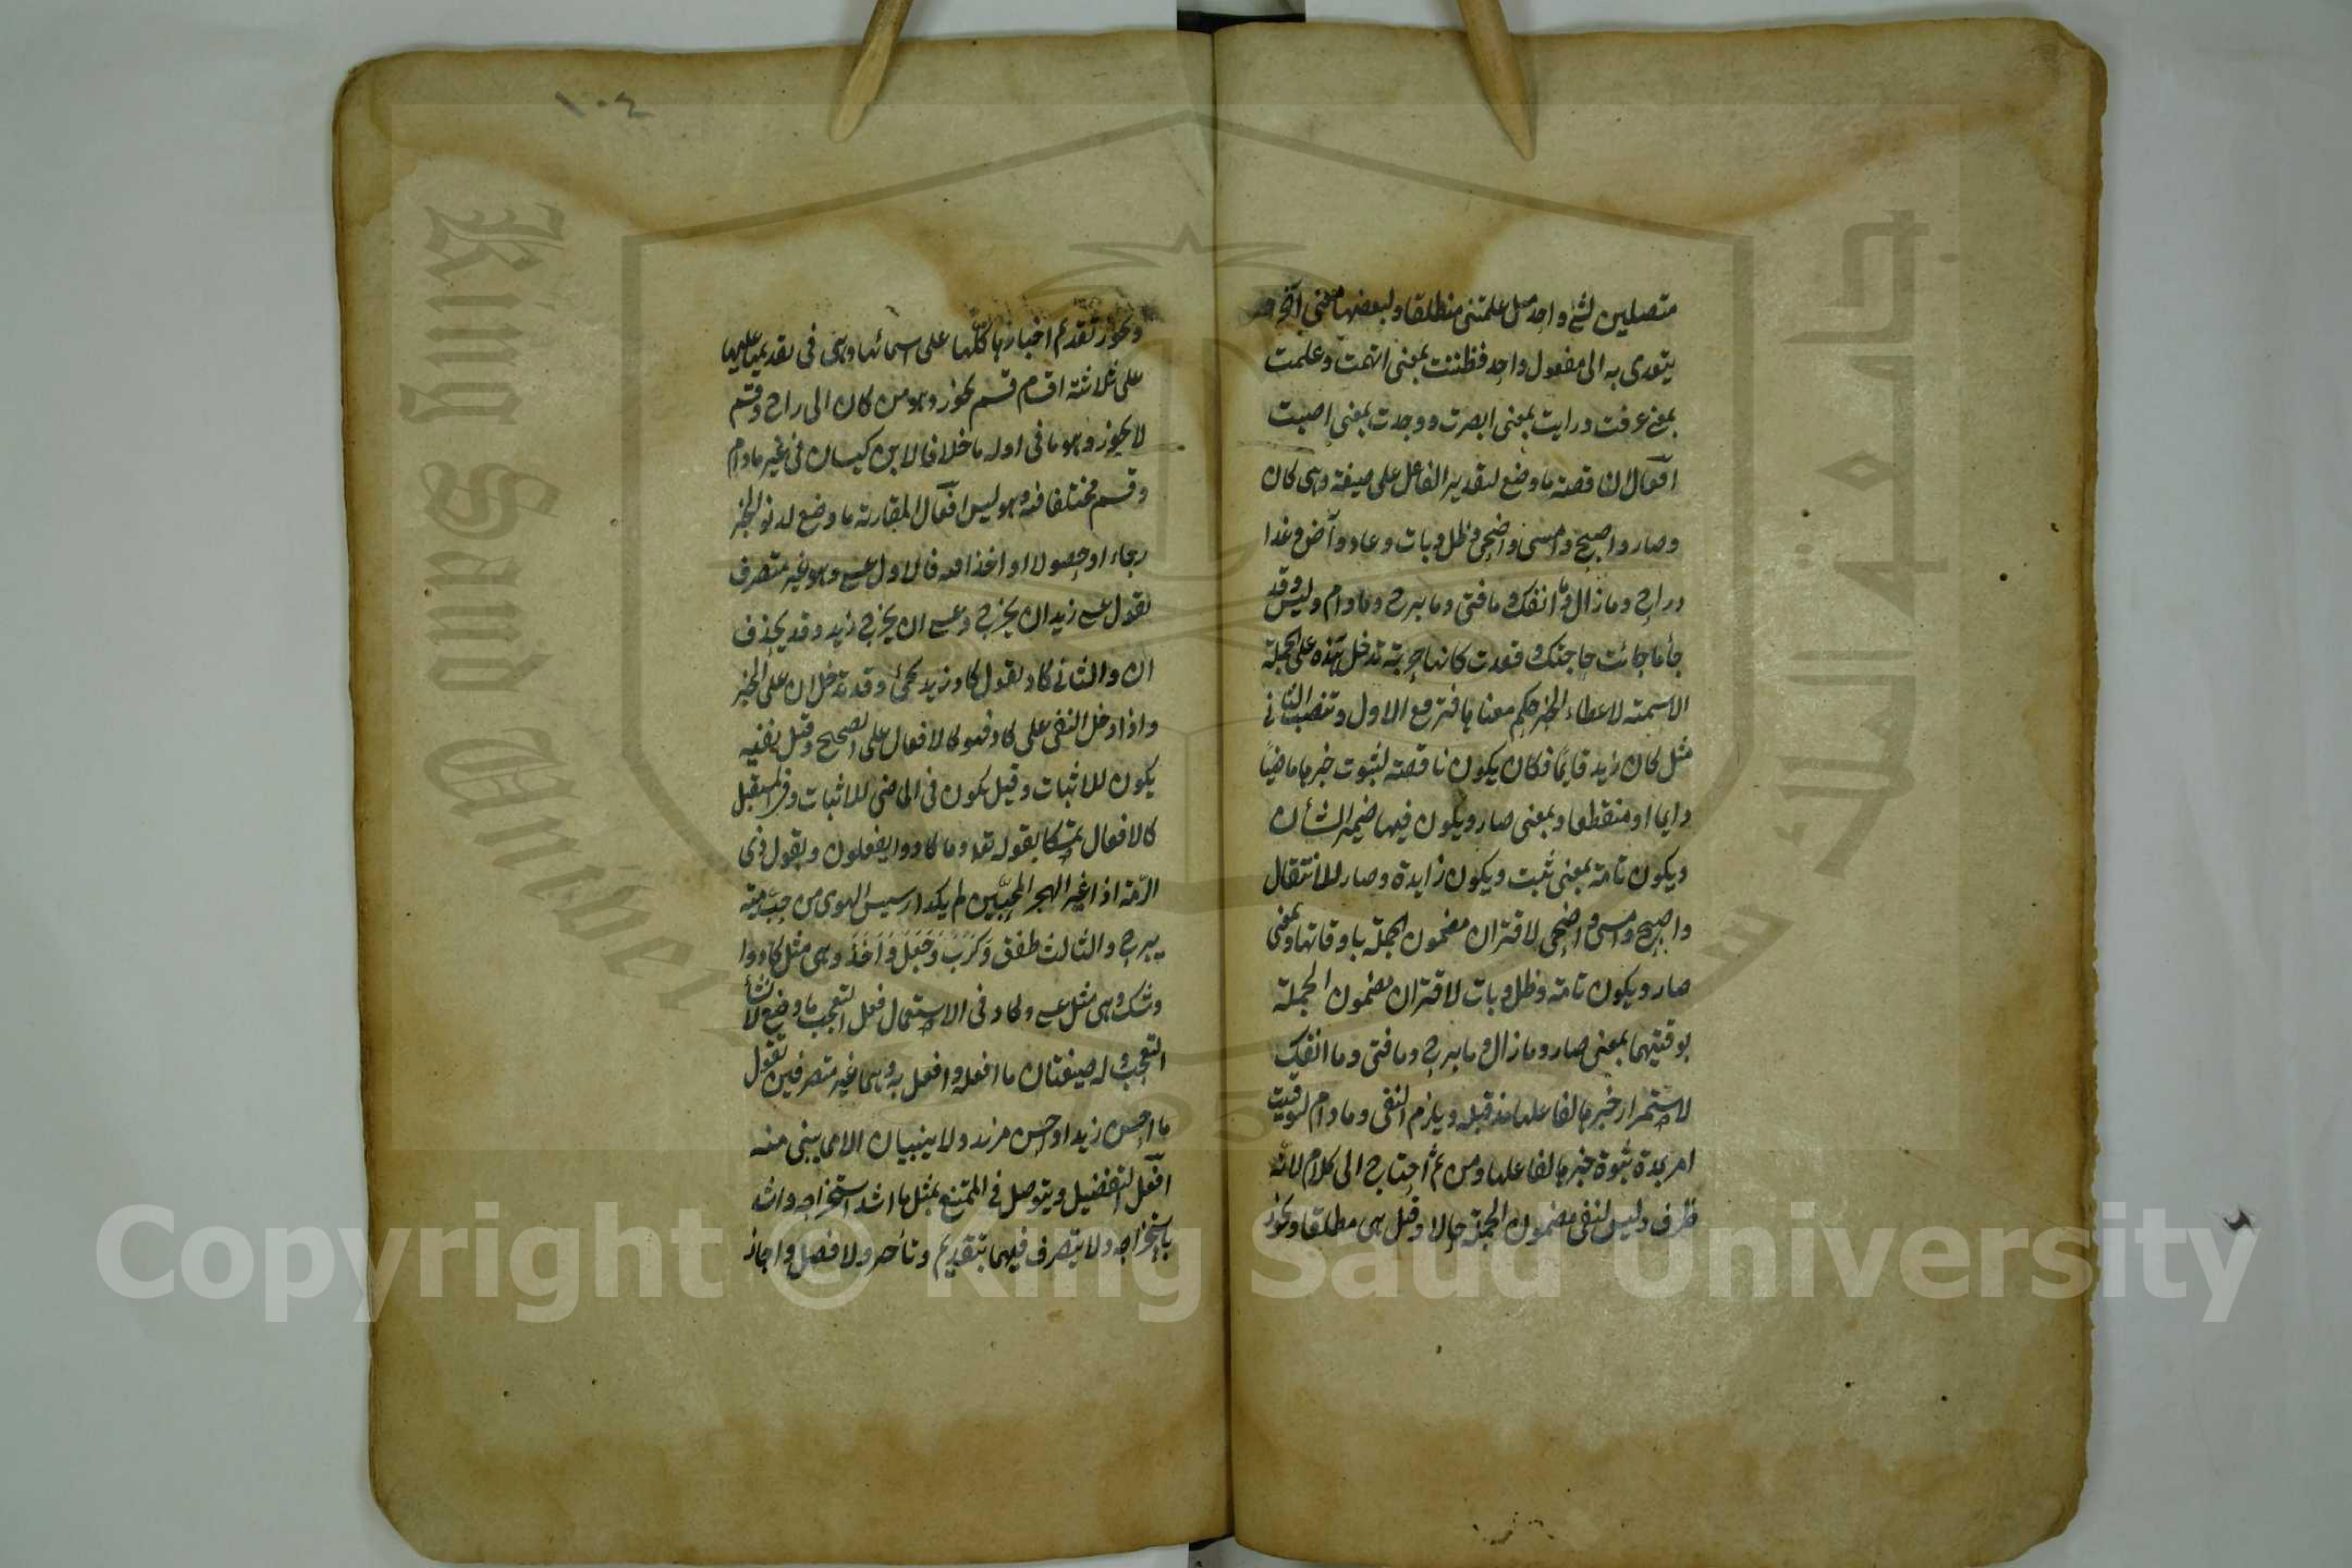 متصلين لشئ واحد مثل علمتنى منطلقا ولبعضها معنى آخر
يتعدى به الى مفعول واحد فظننت بمعنى اتهمت وعلمت
بمعنى عرفت ورايت بمعنى ابصرت ووجدت بمعنى اصبت
افعال الناقصة ما وضع لتقدير الفاعل على صيغة وهى كان
وصار واصبح وامسى واضحى وظل وبات وعاد وآض وغدا
وراح وما زال وما انفك وما فتئ وما برح وما دام وليس وقد
جأ ما جائت حاجتك وقعدت كانها حربة تدخل هذه على الجملة
الاسمية لاعطاء الخبر حكم معناها فترفع الاول وتنصب الثانى
مثل كان زيد قايمًا فكان يكون ناقصة لثبوت خبرها ماضيًا
دايما او منقطعا وبمعنى صار ويكون فيها ضمير الشأن
ويكون تامة بمعنى ثبت ويكون زايدة وصار للانتقال
واصبح وامسى واضحى لاقتران مضمون الجملة باوقاتها وبمعنى
صار ويكون تامة وظل وبات لاقتران مضمون الجملة
بوقتيهما بمعنى صار وما زال وما برح وما فتئ وما انفك
لاستمرار خبرها لفاعلها مذ قبله ويلزم النفى وما دام لتوقيت
امر بمدة ثبوة خبرها لفاعلها ومن ثم احتاج الى كلام لانه
ظرف وليس لنفى مضمون الجملة حالا وقيل هى مطلقا ويجوز
١٠٤
ويجوز تقديم اخبارها كلها على اسمائها وهى فى تقديمها عليها
على ثلاثة اقسام قسم يجوز وهو من كان الى راح وقسم
لا يجوز وهو ما فى اوله ما خلافا لابن كيسان فى غير ما دام
وقسم مختلفا فيه وهو ليس افعال المقاربة ما وضع لدنو الخبر
رجاء او حصولا او اخذا فيه فالاول عسى وهو غير متصرف
تقول عسى زيد ان يخرج وعسى ان يخرج زيد وقد يحذف
ان والثانى كاد تقول كاد زيد يجئ وقد تدخل ان على الخبر
واذا دخل النفى على كاد فهو كالافعال على الصحيح وقيل نفيه
يكون للاثبات وقيل يكون فى الماضى للاثبات وفى المستقبل
كالافعال تمسكا بقوله تعا وما كادوا يفعلون وبقول ذى
الرمة اذا غير الهجر المحبين لم يكد رسيس الهوى من حب مية
يبرح والثالث طفق وكرب وجعل واخذ وهى مثل كاد و
وشك وهى مثل عسى وكاد فى الاستعمال فعل التعجب ما وضع لانشأ
التعجب وله صيغتان ما افعله وافعل به وهما غير متصرفين تقول
ما احسن زيدا واحسن بزيد ولا يبنيان الا مما يبنى منه
افعل التفضيل ويتوصل فى الممتنع بمثل ما اشد استخراجه واشد
باستخراجه ولا يتصرف فيهما بتقديم وتأخير ولا فصل واجاز